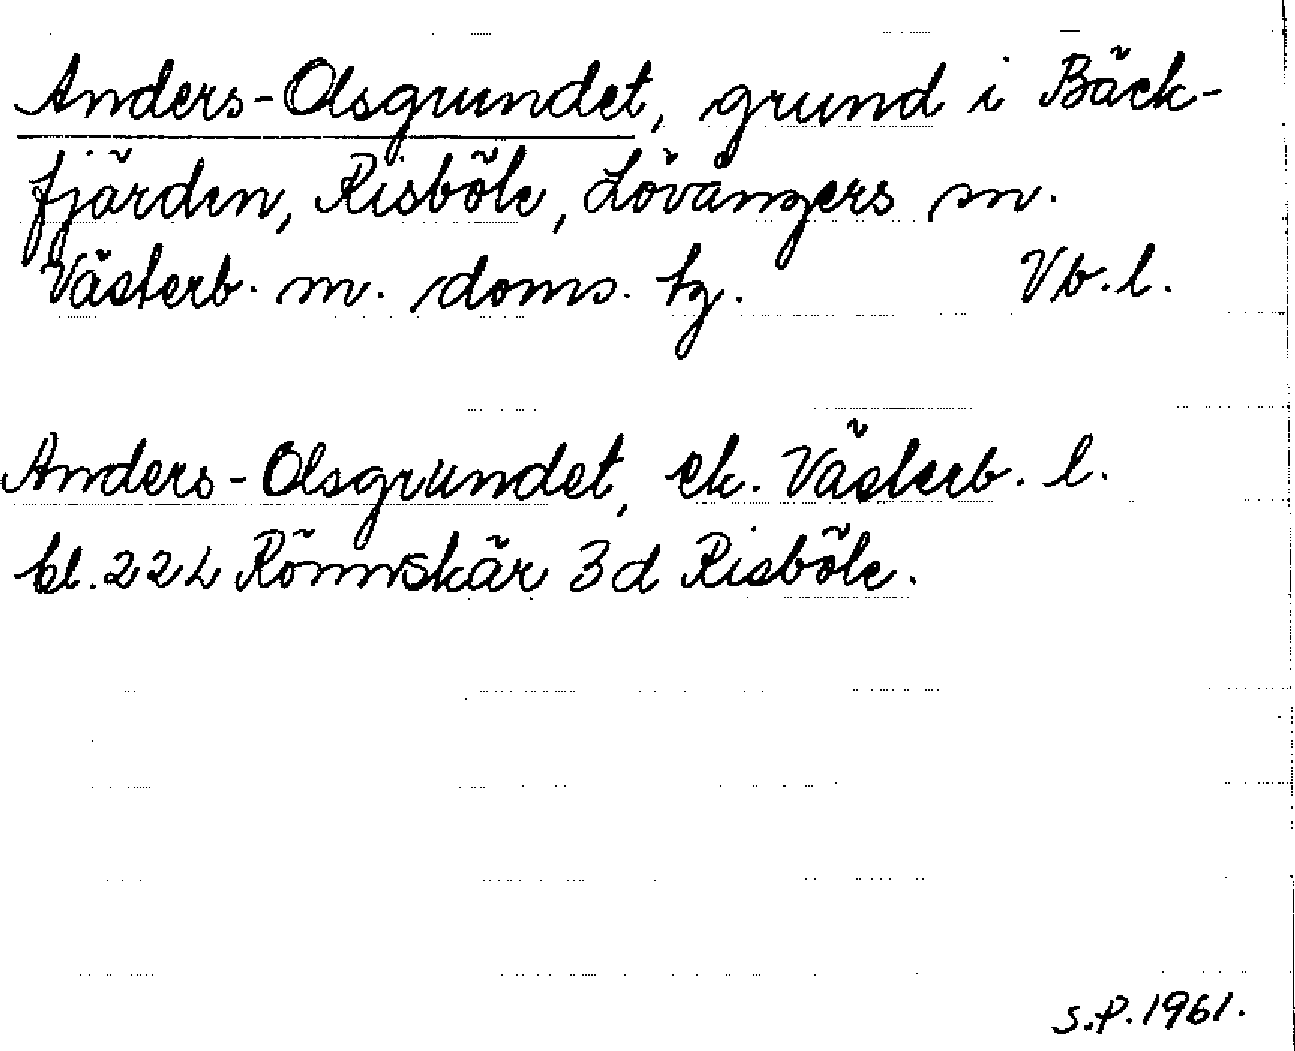 Anders-Olsgrundet, grund i Bäck-
fjärden, Risböle, Lövångers sn.
Västerb. m. doms. tg. Vb. l.
Anders-Olsgrundet, ek. Västerb. l.
bl. 22L Rönnskär 3d Risböle.
S.P. 1961.